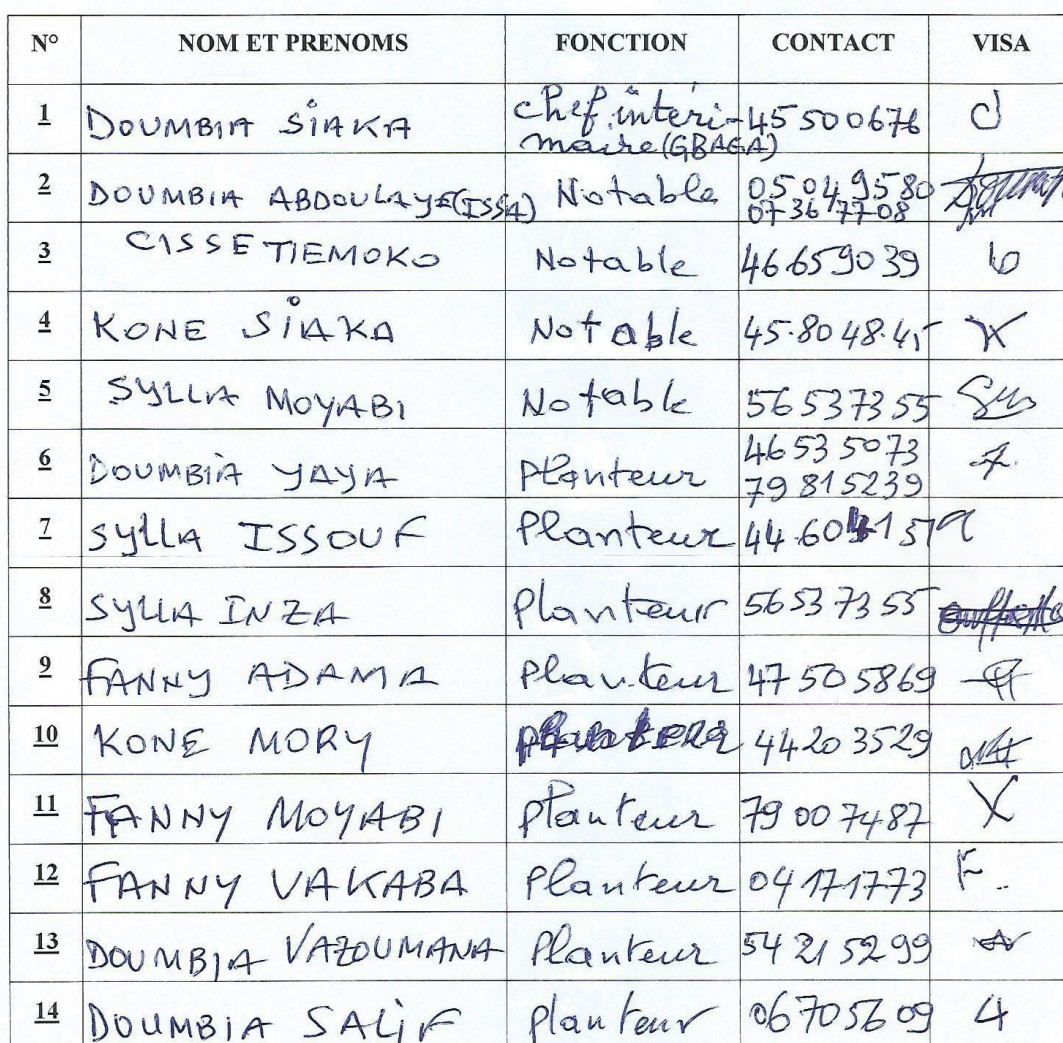 N° NOM ET PRENOMS FONCTION CONTACT VISA
1 DOUMBIA SIAKA Chef intéri-maire (GBAGA) 45 50 06 76
2 DOUMBIA ABDOULAYE (ISSA) Notable 05 04 95 80
07 36 77 08
3 CISSE TIEMOKO Notable 46 65 90 39
4 KONE SIAKA Notable 45.80 48.45
5 SYLLA MOYABI Notable 56 53 73 55
6 DOUMBIA YAYA Planteur 46 53 50 73
79 81 52 39
7 SYLLA ISSOUF Planteur 44.60
8 SYLLA INZA Planteur 56 53 73 55
9 FANNY ADAMA Planteur 47 50 58 69
10 KONE MORY 44 20 35 29
11 FANNY MOYABI Planteur 79 00 74 87
12 FANNY VAKABA Planteur 04 17 17 73 F.
13 DOUMBIA VAZOUMANA Planteur 54 21 52 99
14 DOUMBIA SALIF planteur 06 70 56 09